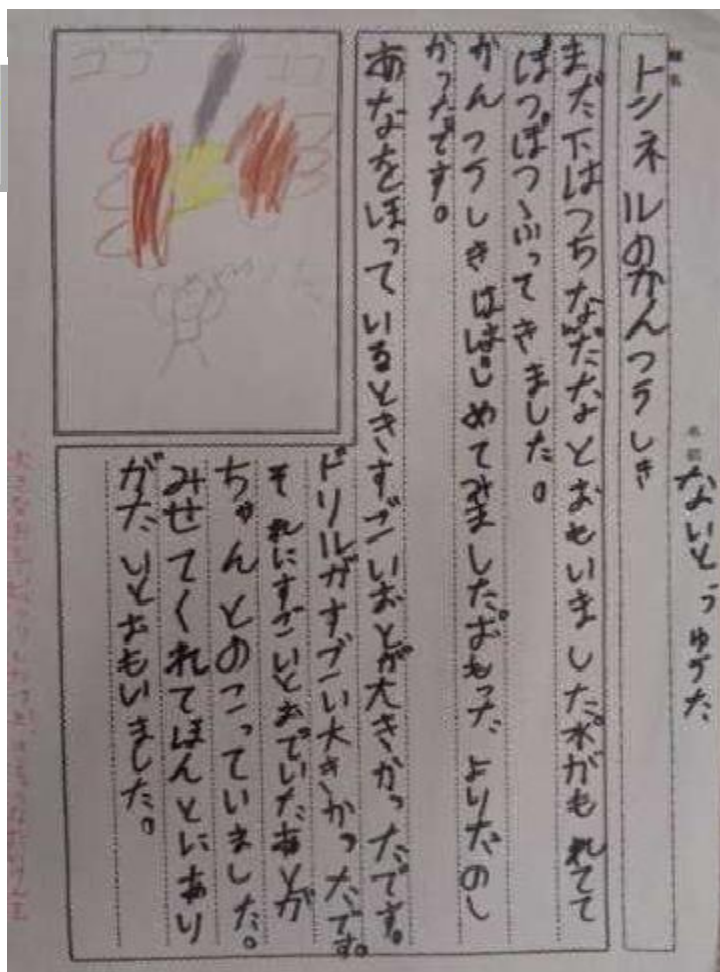 題名
トンネルのかんつうしき
名前
ないとうゆうた
まだ下はつちなんだなとおもいました。水がもれてて
ぽつぽつふってきました。
かんつうしきははじめてみました。おもったよりたのし
かったです。
あなをほっているときすごいおとが大きかったです。
ドリルがすごい大きかったです。
それにすごいとおでいたあとが
ちゃんとのこっていました。
みせてくれてほんとにあり
がたいとおもいました。
ココ
ココ